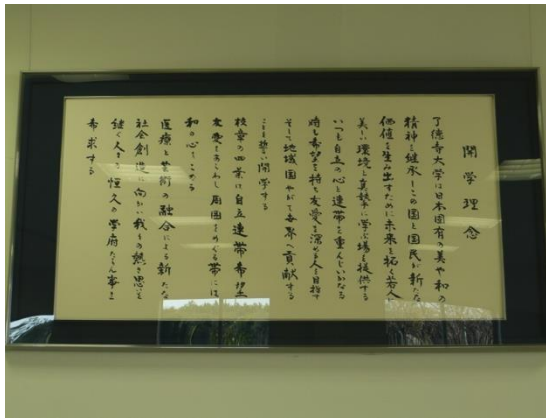 開学理念
了徳寺大学は日本固有の美や和の
精神を継承しこの国と国民が新たな
価値を生み出すために未来を拓く若人に
美しい環境と真摯に学ぶ場を提供する
いつも自立の心と連帯を重んじいかなる
時も希望を持ち友愛を深める人を目指す
そして地域国やがて各界へ貢献する
ことを誓い開学する
校章の四葉は自立連帯希望
友愛をあらわし周囲をめぐる帯には
和の心をこめる
医療と芸術の融合による新たな
社会創造に向かい我らの熱き思いを
継ぐ人よ恒久の学府たらん事を
希求する